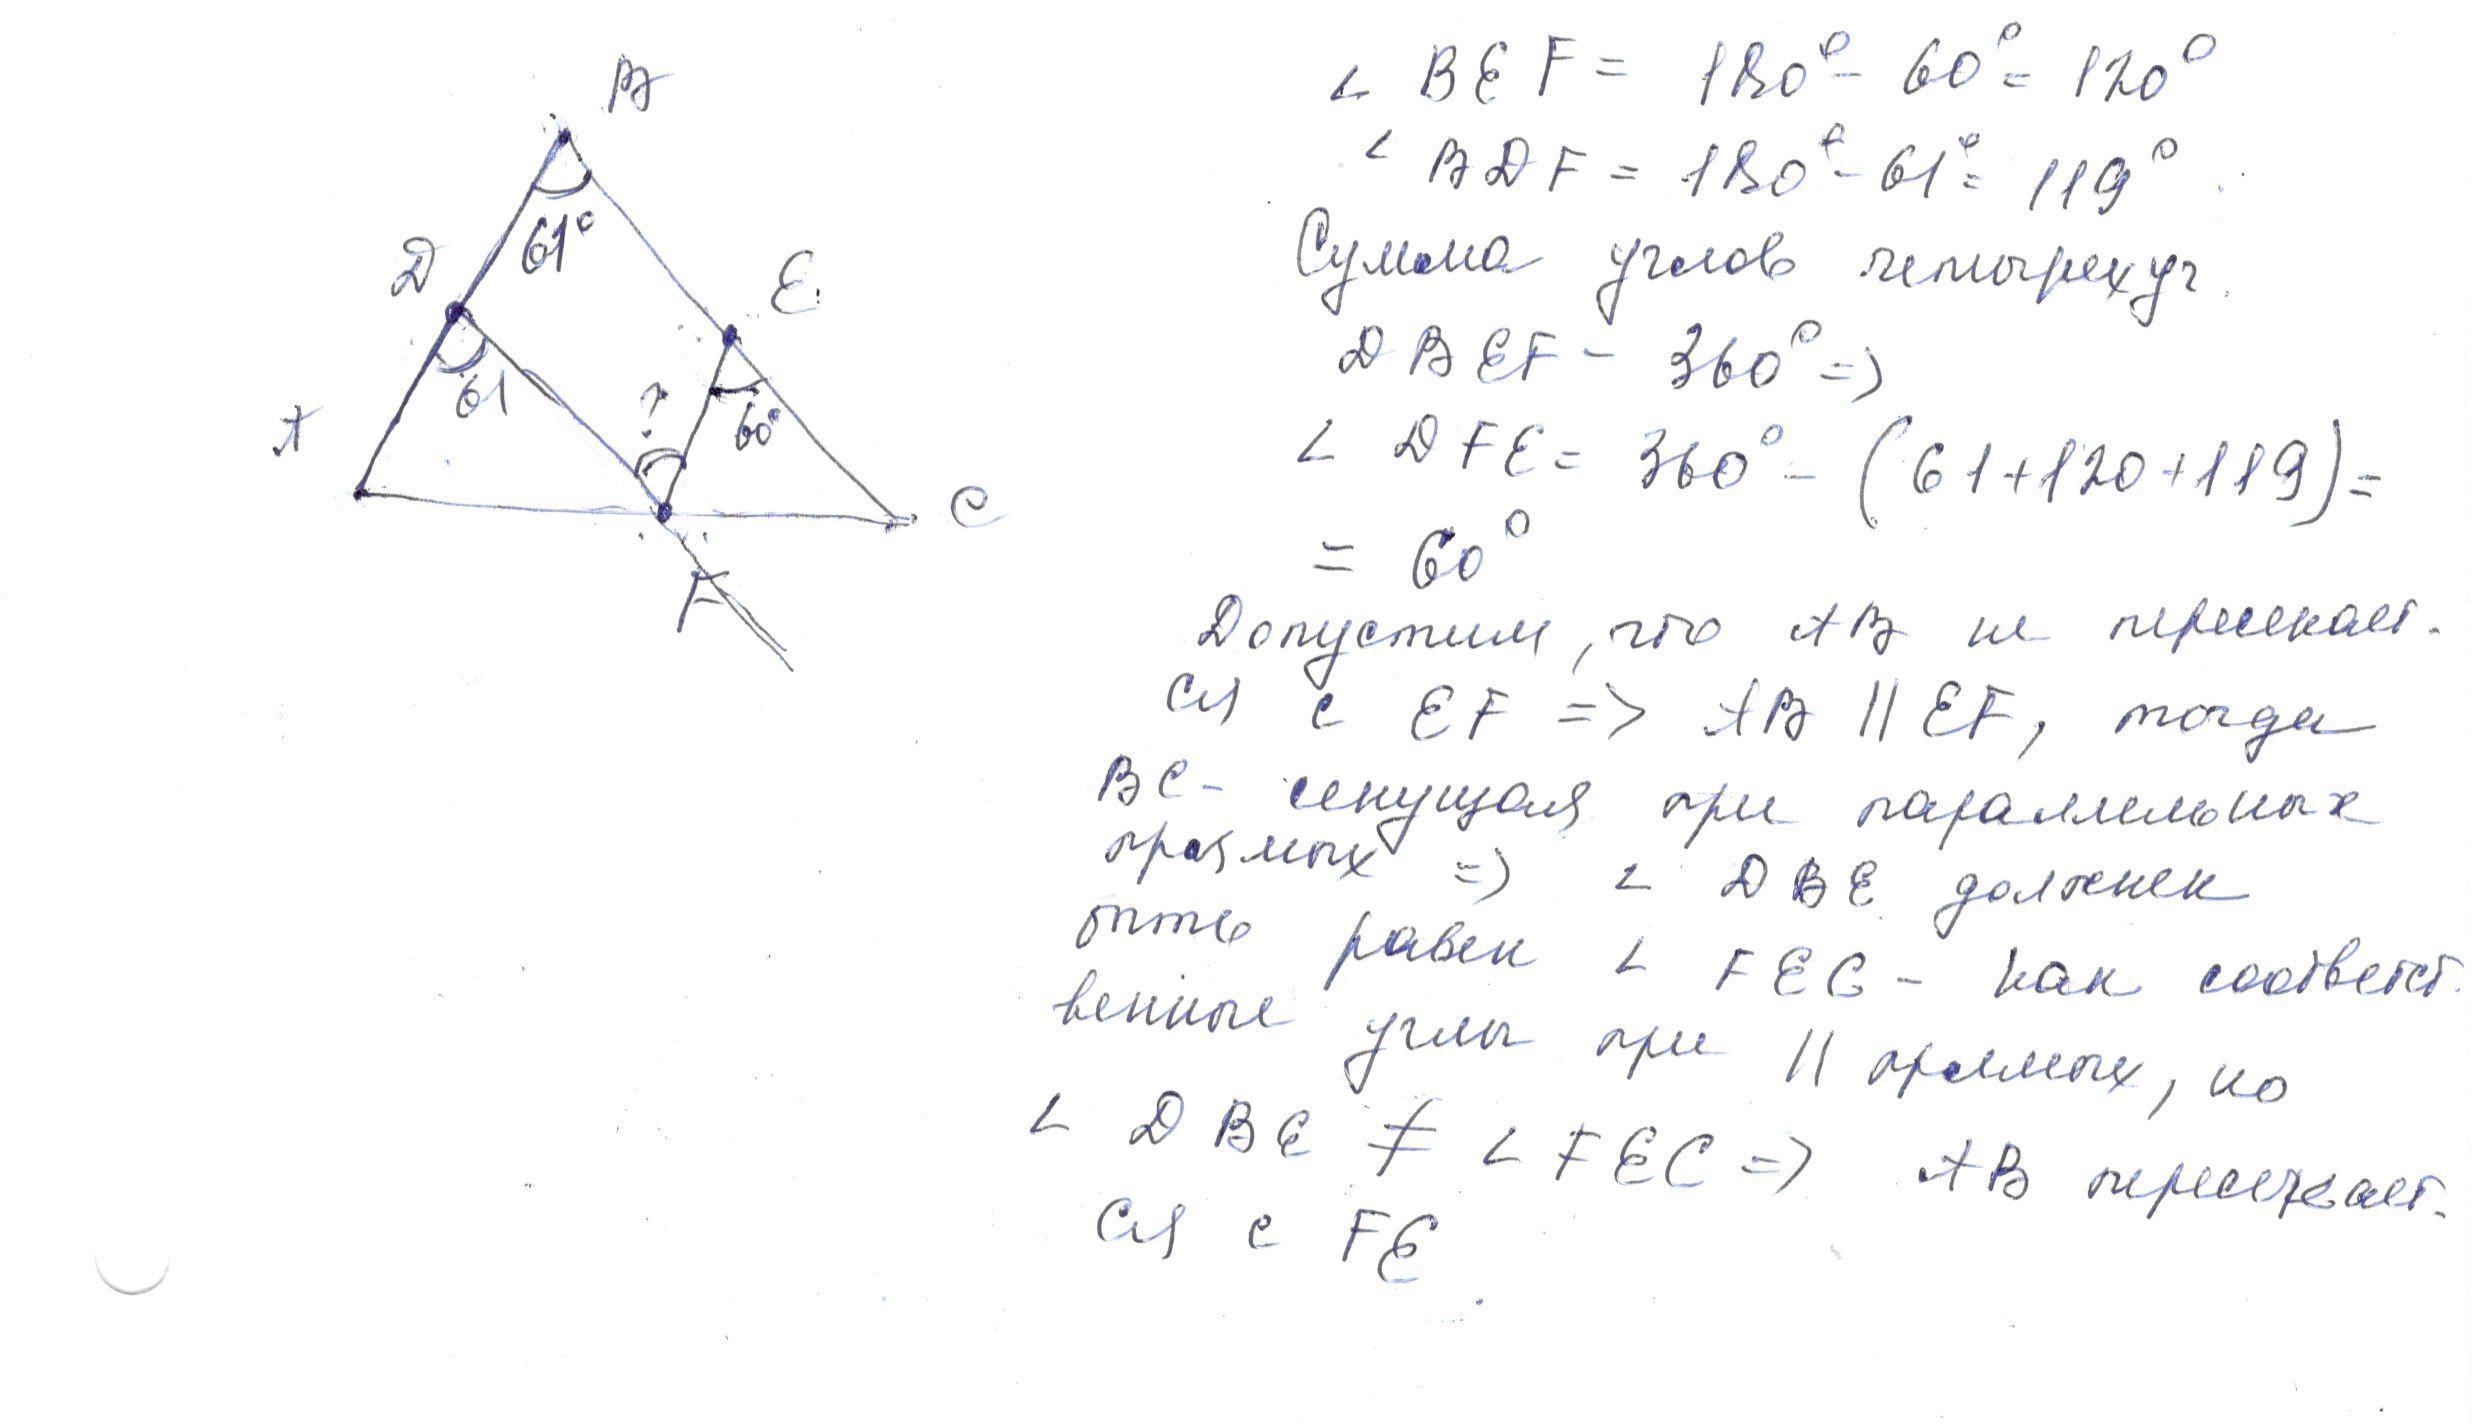 B
61°
D
E
61
?
60°
A
C
F
∠ BEF = 180° - 60° = 120°
∠ BDF = 180° - 61° = 119°
Сумма углов четырехуг.
DBEF - 360° =>
∠ DFE = 360° - (61+120+119) =
= 60°
Допустим, что AB не пересекает-
ся с EF => AB || EF, тогда
BC - секущая при параллельных
прямых => ∠ DBE должен
быть равен ∠ FEC - как соответст-
венные углы при || прямых, но
∠ DBE ≠ ∠ FEC => AB пересекает-
ся с FE